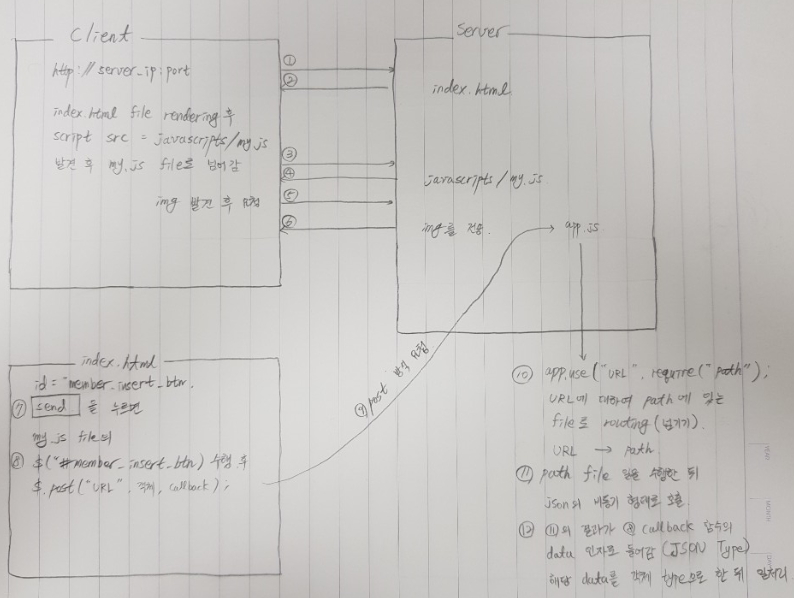 Client
http://server_ip:port
index.html file rendering 후
script src = javascripts/my.js
발견 후 my.js file로 넘어감
img 발견 후 요청
①
②
③
④
⑤
⑥
Server
index.html
javascripts/my.js
img를 전송.
app.js
index.html
id = "member_insert_btn.
⑦ send 을 누르면
my.js file의
⑧ $("#member_insert_btn) 수행 후
$.post("URL", 객체, callback);
⑨ post 방식 요청
⑩ app.use("URL", require("path");
URL에 대하여 path에 있는
file로 routing (넘기기).
URL → path.
⑪ path file 일을 수행한 뒤
json의 비동기 형태로 호출.
⑫ ⑪의 결과가 ⑧ callback 함수의
data 인자로 들어감 (JSON Type)
해당 data를 객체 type으로 한 뒤 일처리